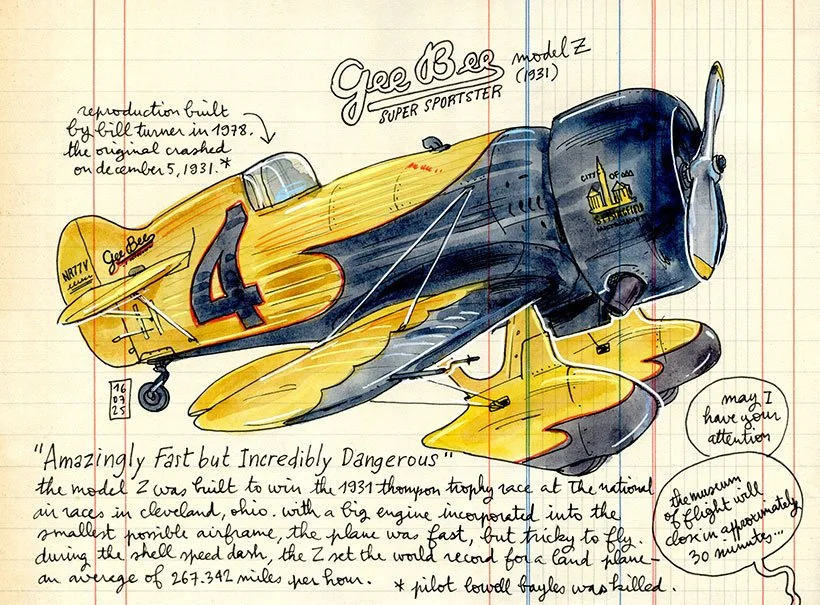 Gee Bee
SUPER SPORTSTER
model Z
(1931)
reproduction built
by bill turner in 1978.
the original crashed
on december 5, 1931.*
CITY OF
SPRINGFIELD
4
Gee Bee
NR77V
16
07
25
"Amazingly Fast but Incredibly Dangerous"
the model Z was built to win the 1931 thompson trophy race at the national
air races in cleveland, ohio. with a big engine incorporated into the
smallest possible airframe, the plane was fast, but tricky to fly.
during the shell speed dash, the Z set the world record for a land plane–
an average of 267.342 miles per hour.
* pilot lowell bayles was killed.
may I
have your
attention
the museum
of flight will
close in approximately
30 minutes...